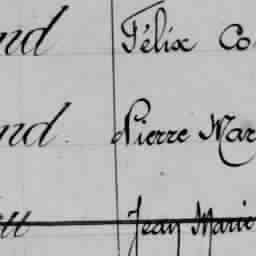 nd Félix Co
nd Pierre Mar
tt Jean Marie